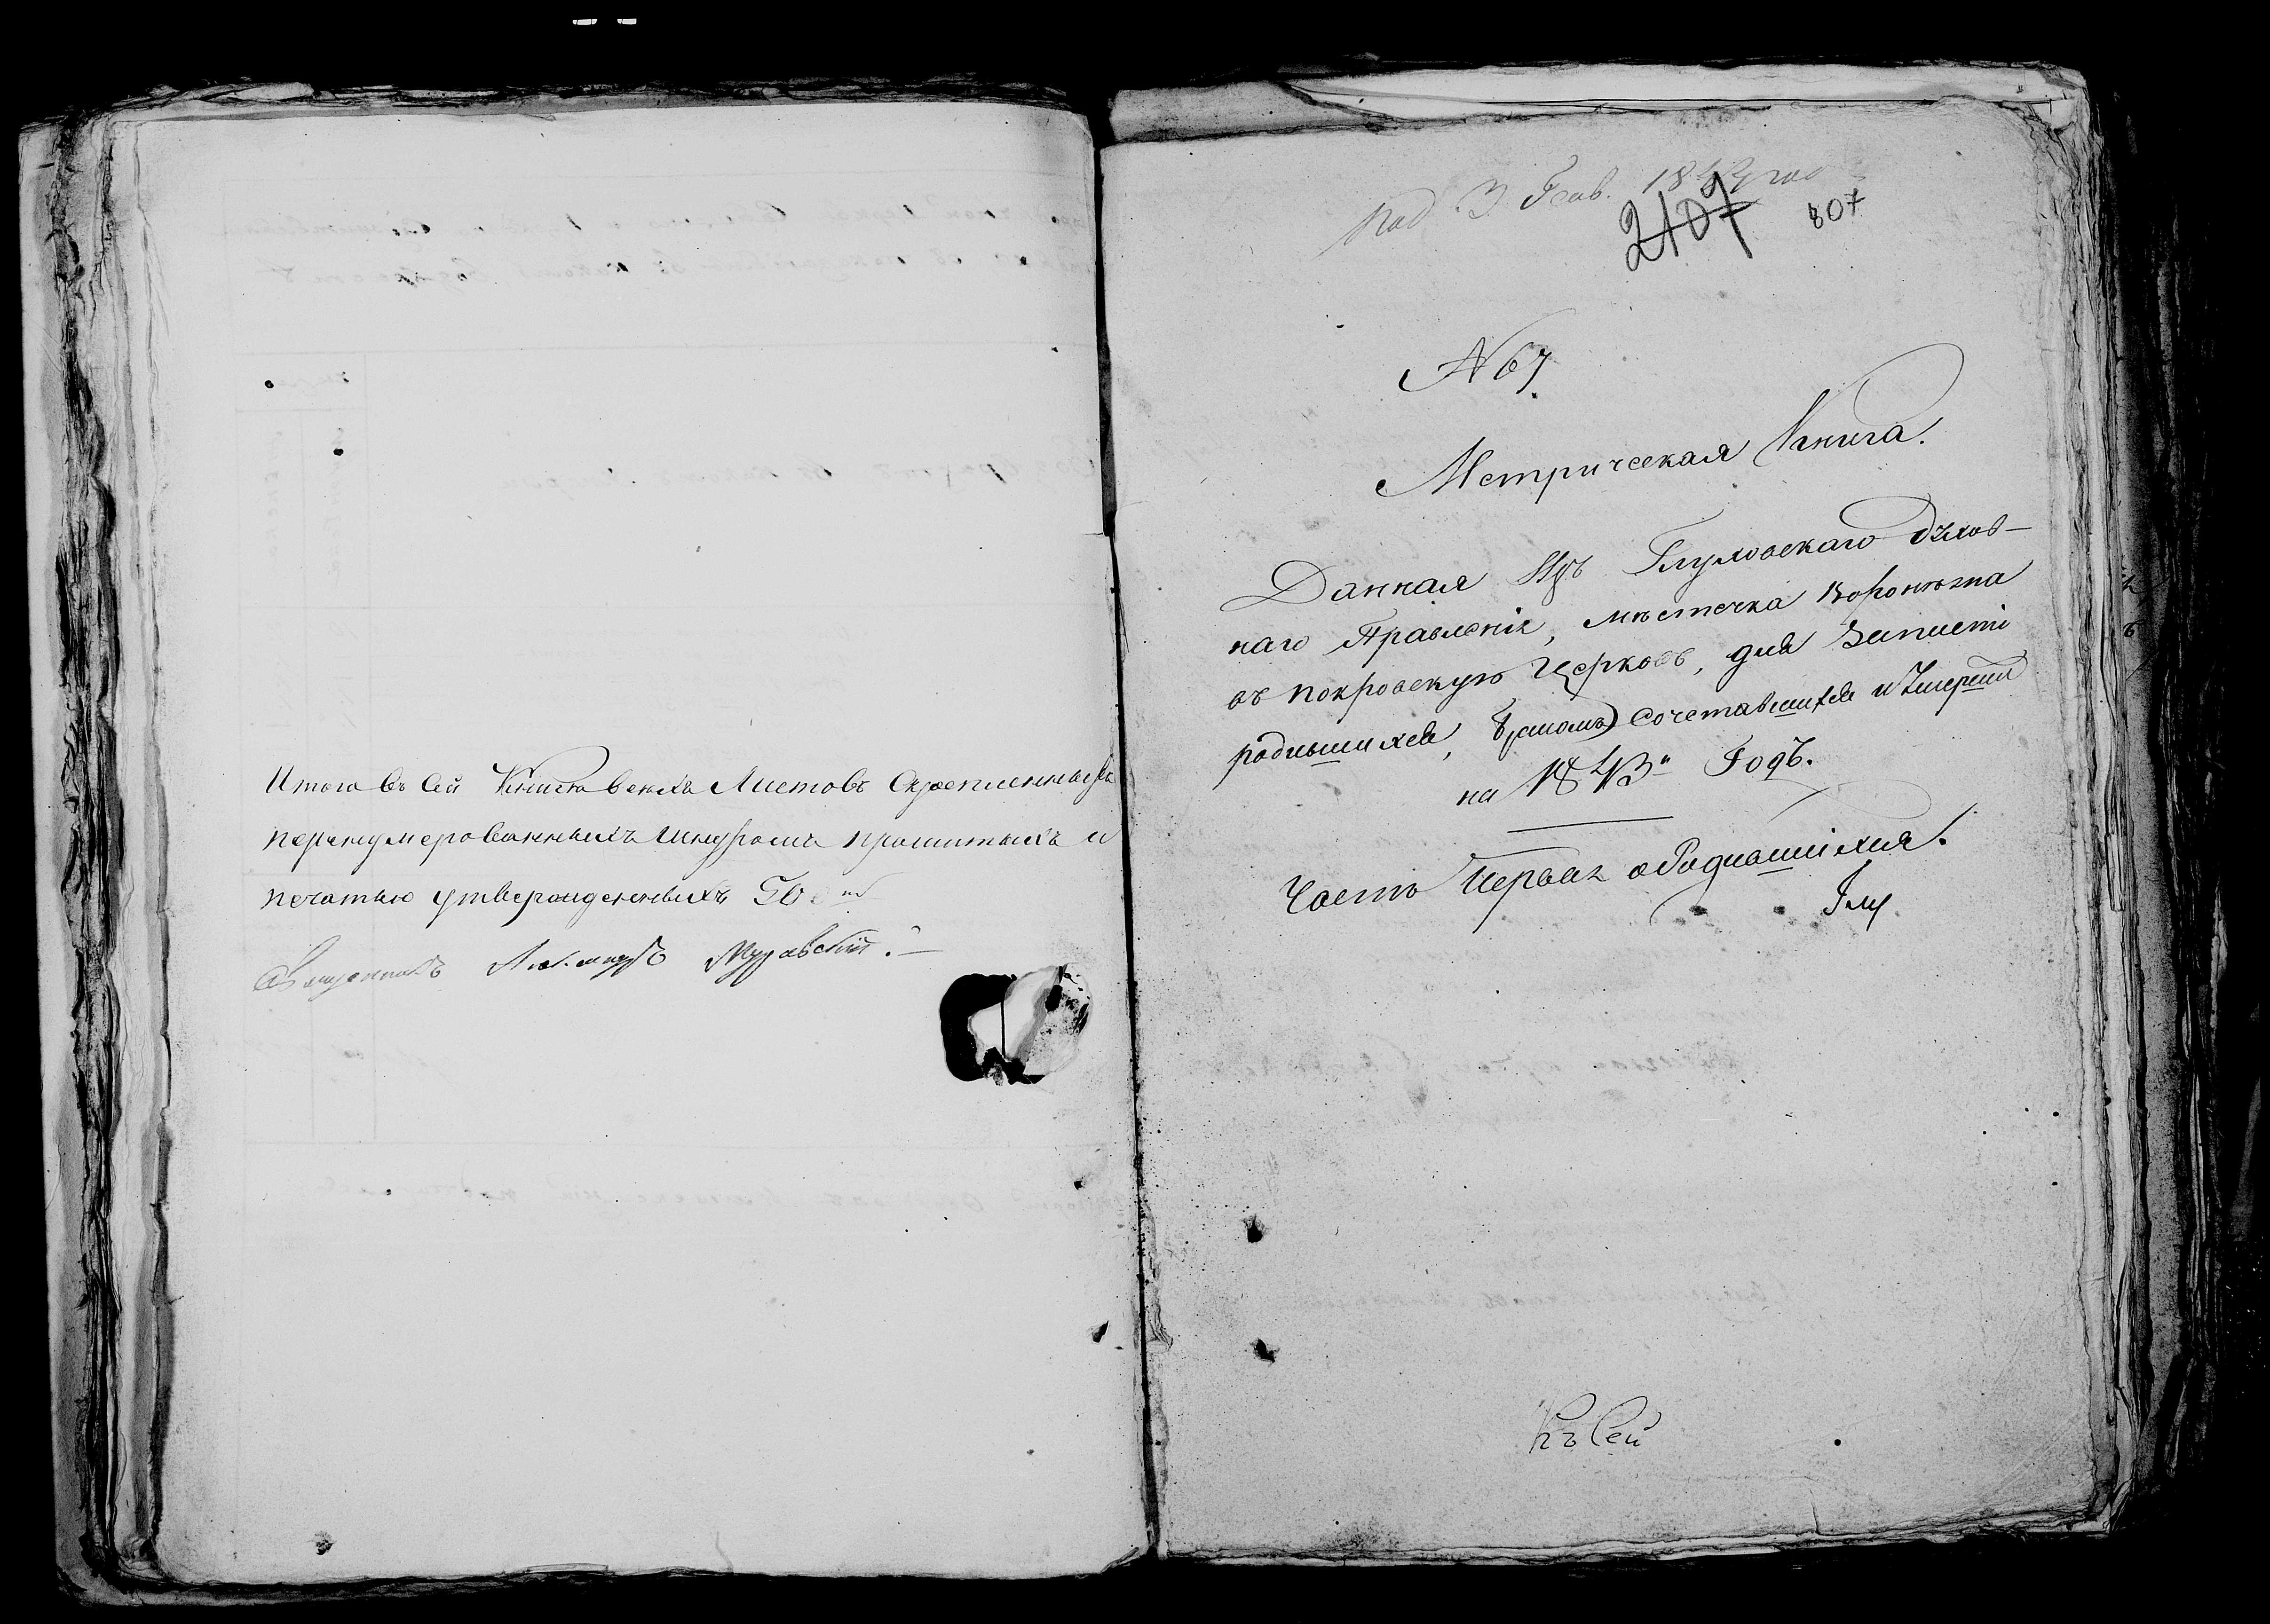 Итого въ сей Книги всехъ Листовъ Скрепленныхъ
перенумерованныхъ шнуромъ прошитыхъ и
печатью утвержденныхъ 50
Священникъ Александръ
под. 3. Генв. 184 год
2107
807
N 67
Метрическая Книга.
Данная Изъ Глуховскаго Духов-
наго Правленія, мѣстечка Воронѣжа
въ покровскую Церковь, для Записки
родившихся, бракомъ сочетавшихся и Умерши
на 1843й Годъ.
Часть Первая о Родившихся.
Глу
Къ сей